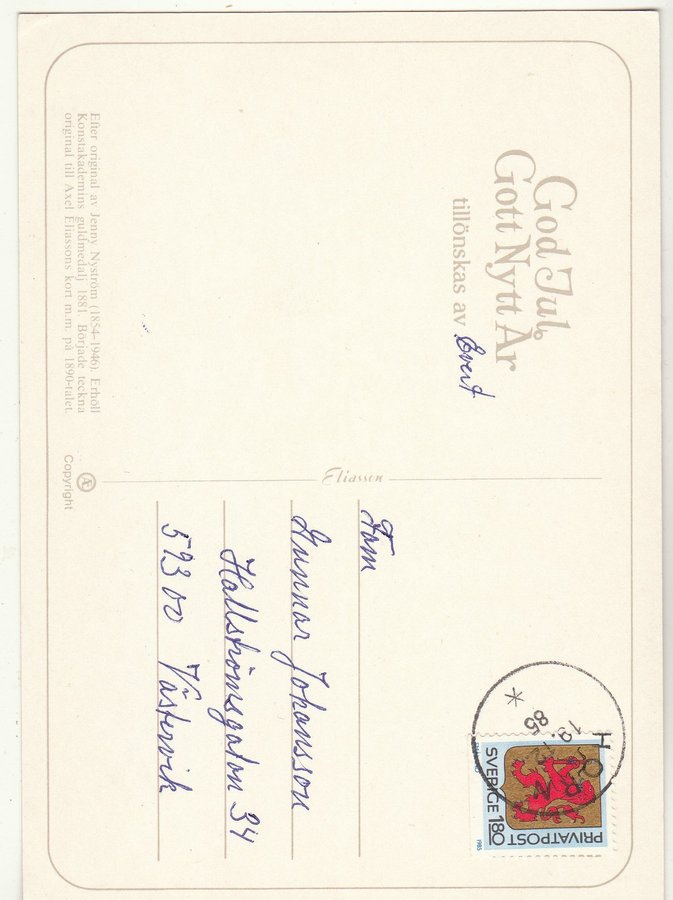 God Jul
Gott Nytt År
tillönskas av Evert
Efter original av Jenny Nyström (1854–1946). Erhöll
Konstakademins guldmedalj 1881. Började teckna
original till Axel Eliassons kort m.m. på 1890-talet.
Æ
Copyright
Eliasson
Fam
Gunnar Johansson
Hallströmsgatan 34
593 00 Västervik
PRIVATPOST
SVERIGE 180
1985
HORN
85